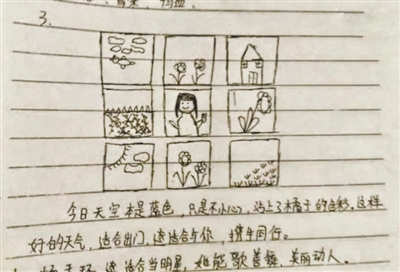 3.
今日天空本是蓝色,只是不小心,沾上了橘子的色彩。这样
好的天气,适合出门,还适合与你,携手同行。
适合当明星,她能歌善舞,美丽动人。